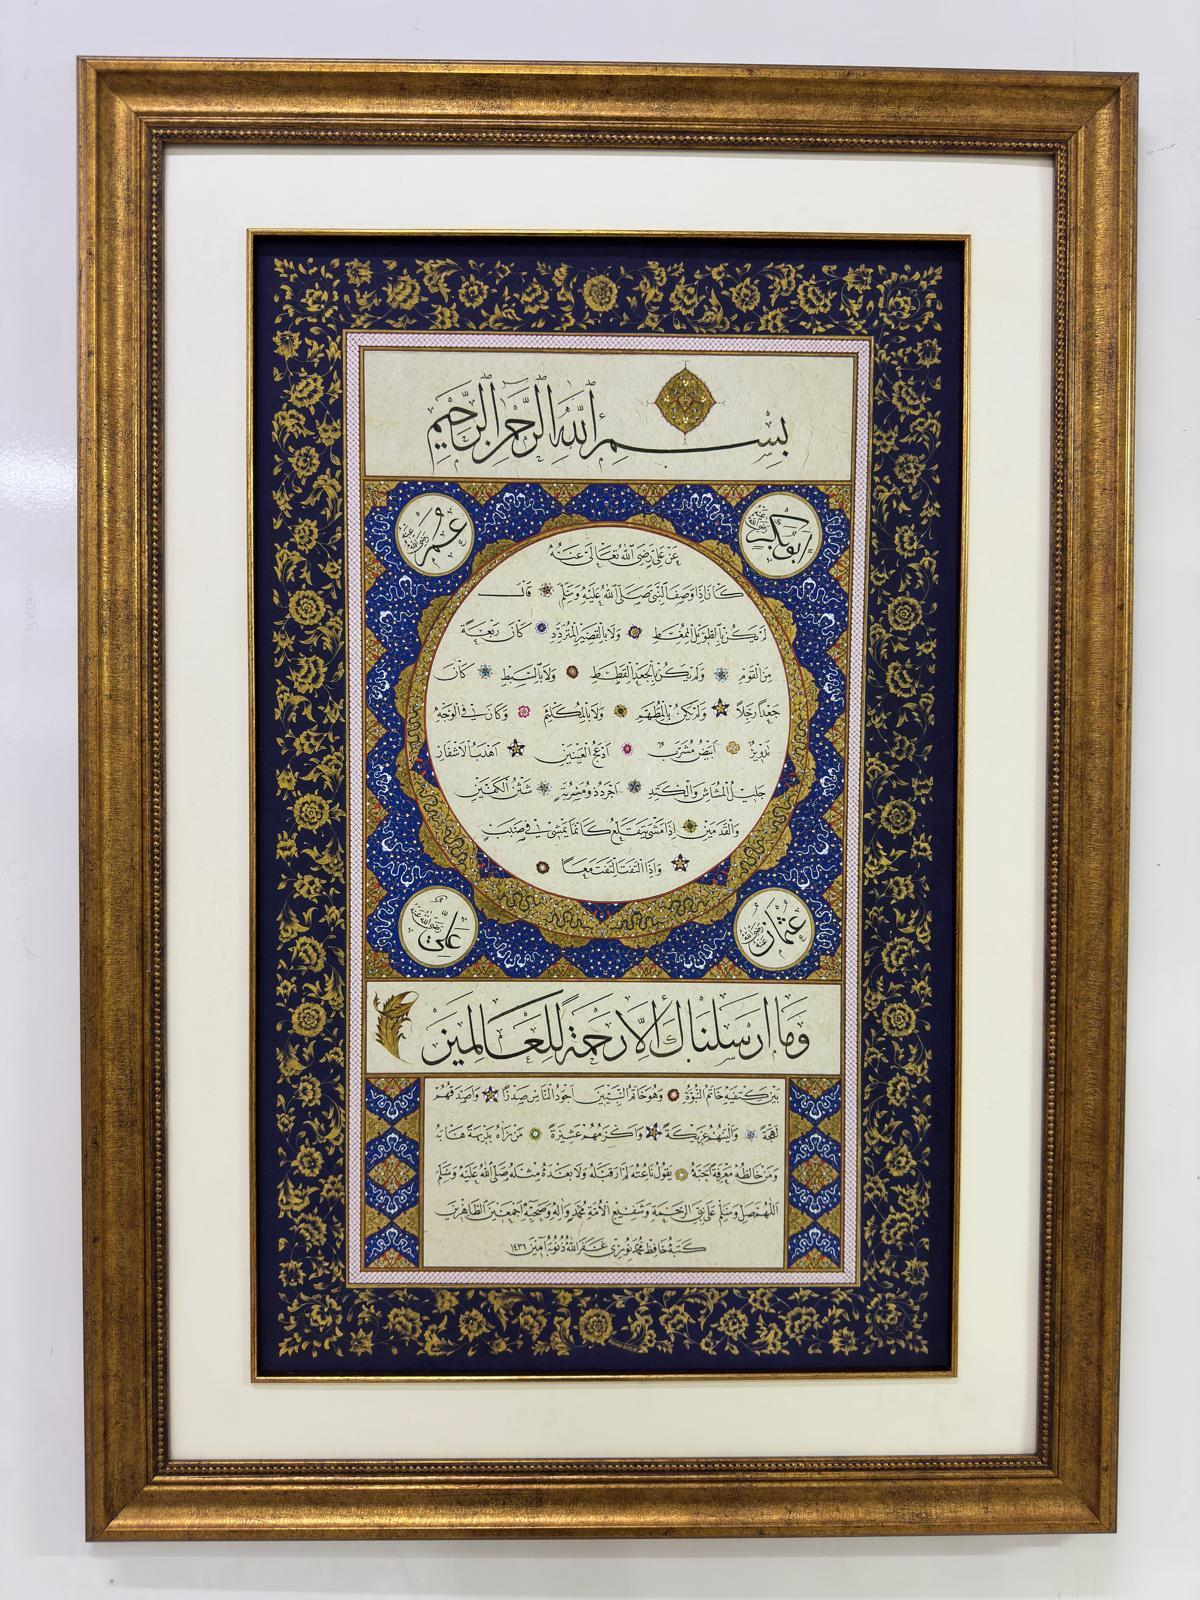 بِسْمِ اللهِ الرَّحْمٰنِ الرَّحِيمِ
أبو بكر رضي الله عنه
عمر رضي الله عنه
عَنْ عَلِيٍّ رَضِيَ اللهُ تَعَالَى عَنْهُ
كَانَ إِذَا وَصَفَ النَّبِيَّ صَلَّى اللهُ عَلَيْهِ وَسَلَّمَ قَالَ
لَمْ يَكُنْ بِالطَّوِيلِ الْمُمَّغِطِ وَلَا بِالْقَصِيرِ الْمُتَرَدِّدِ كَانَ رَبْعَةً
مِنَ الْقَوْمِ وَلَمْ يَكُنْ بِالْجَعْدِ الْقَطَطِ وَلَا بِالسَّبِطِ كَانَ
جَعْدًا رَجِلًا وَلَمْ يَكُنْ بِالْمُطَهَّمِ وَلَا بِالْمُكَلْثَمِ وَكَانَ فِي الْوَجْهِ
تَدْوِيرٌ أَبْيَضُ مُشْرَبٌ أَدْعَجُ الْعَيْنَيْنِ أَهْدَبُ الْأَشْفَارِ
جَلِيلُ الْمُشَاشِ وَالْكَتَدِ أَجْرَدُ ذُو مَسْرُبَةٍ شَثْنُ الْكَفَّيْنِ
وَالْقَدَمَيْنِ إِذَا مَشَى يَتَقَلَّعُ كَأَنَّمَا يَمْشِي فِي صَبَبٍ
وَإِذَا الْتَفَتَ الْتَفَتَ مَعًا
عثمان رضي الله عنه
علي رضي الله عنه
وَمَا أَرْسَلْنَاكَ إِلَّا رَحْمَةً لِلْعَالَمِينَ
بَيْنَ كَتِفَيْهِ خَاتَمُ النُّبُوَّةِ وَهُوَ خَاتَمُ النَّبِيِّينَ أَجْوَدُ النَّاسِ صَدْرًا وَأَصْدَقُهُمْ
لَهْجَةً وَأَلْيَنُهُمْ عَرِيكَةً وَأَكْرَمُهُمْ عَشِيرَةً مَنْ رَآهُ بَدِيهَةً هَابَهُ
وَمَنْ خَالَطَهُ مَعْرِفَةً أَحَبَّهُ يَقُولُ نَاعِتُهُ لَمْ أَرَ قَبْلَهُ وَلَا بَعْدَهُ مِثْلَهُ صَلَّى اللهُ عَلَيْهِ وَسَلَّمَ
اللّٰهُمَّ صَلِّ وَسَلِّمْ عَلَى نَبِيِّ الرَّحْمَةِ وَشَفِيعِ الْأُمَّةِ مُحَمَّدٍ وَآلِهِ وَصَحْبِهِ أَجْمَعِينَ الطَّاهِرِينَ
كَتَبَهُ حَافِظ مُحَمَّد نُورِي غَفَرَ اللهُ ذُنُوبَهُ آمِينَ ١٤٣٦